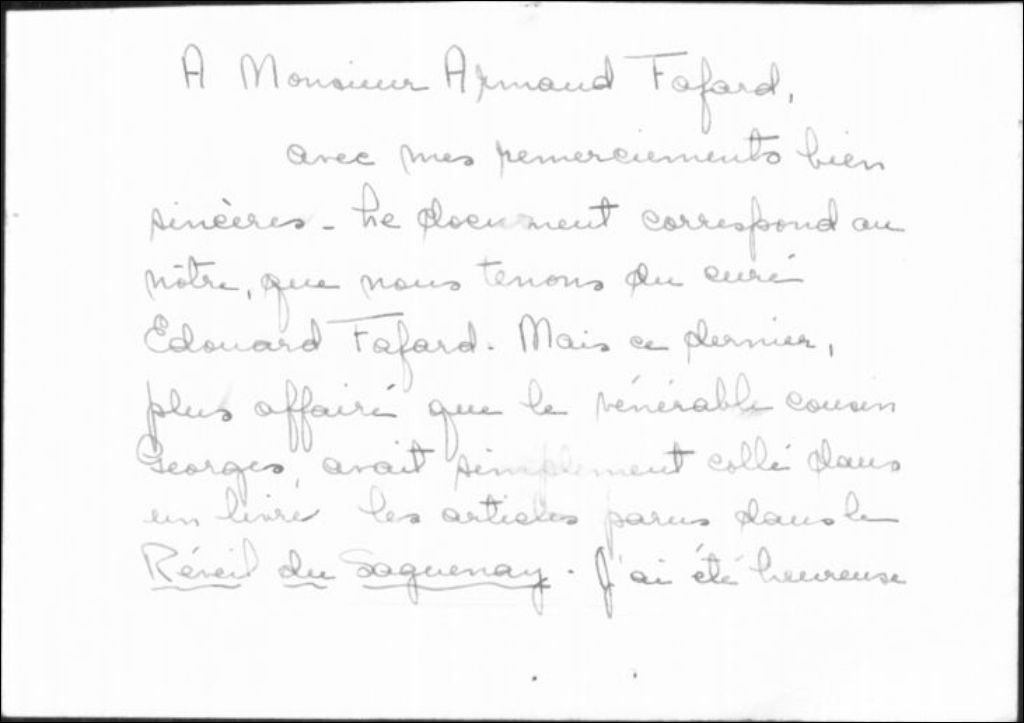 A Monsieur Armand Fafard,
avec mes remerciements bien
sincères - Le document correspond au
nôtre, que nous tenons du curé
Edouard Fafard. Mais ce dernier,
plus affairé que le vénérable cousin
Georges, avait simplement collé dans
un livre les articles parus dans le
Réveil du Saguenay. J'ai été heureuse